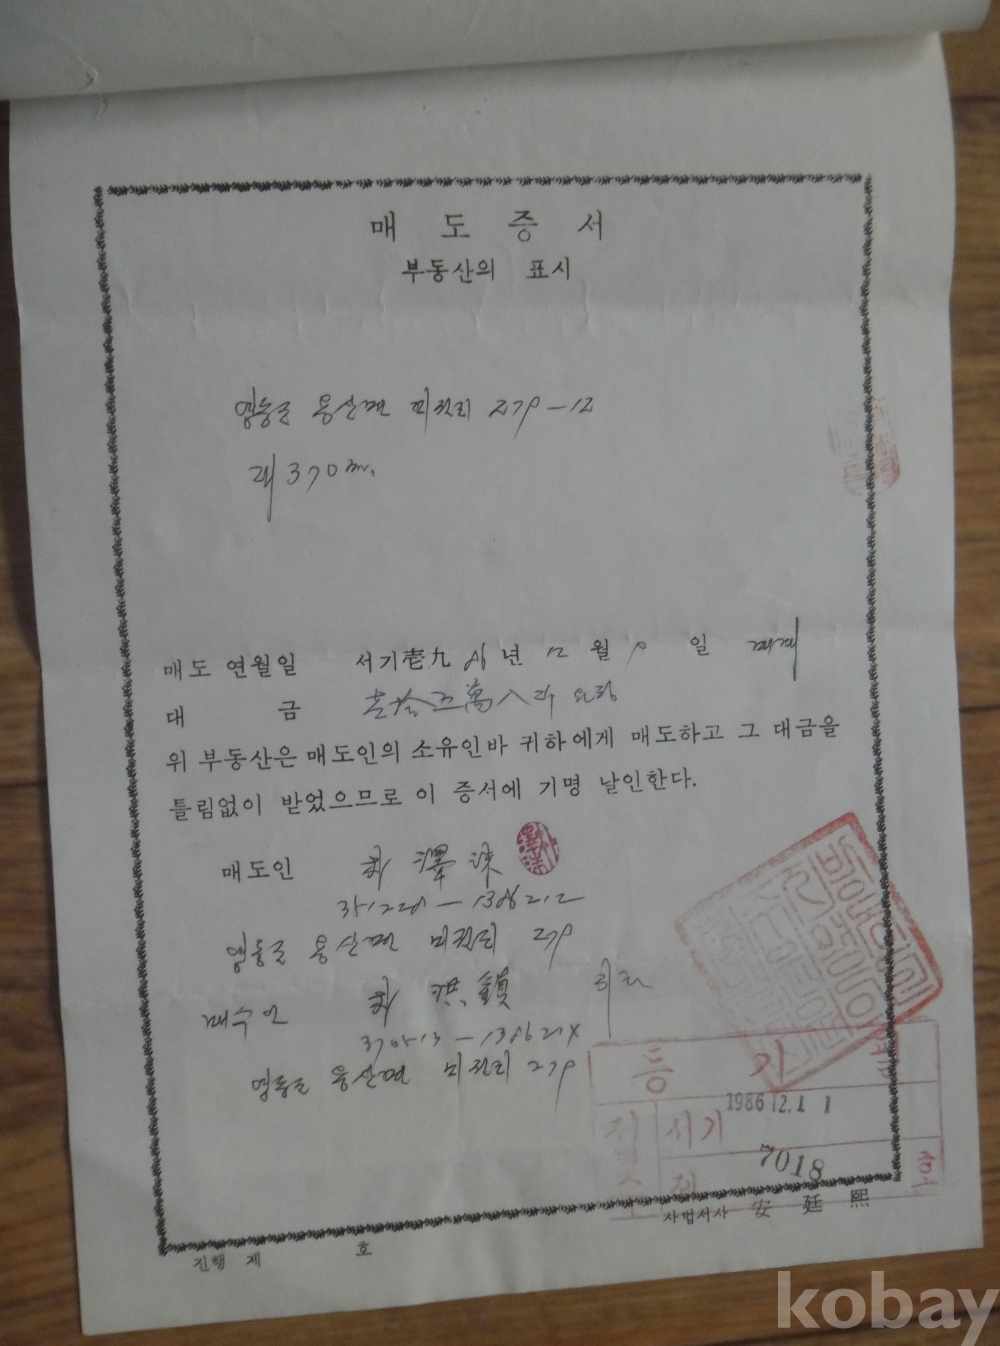 매 도 증 서
부동산의 표시
영동군 용산면 미전리 279-12
대 370㎡.
매도 연월일 서기壱九 86 년 12 월 9 일 매매
대 금 壱拾五萬八千 원정
위 부동산은 매도인의 소유인바 귀하에게 매도하고 그 대금을
틀림없이 받었으므로 이 증서에 기명 날인한다.
매도인 澤洙
영동군 용산면 미전리 279
매수인 洪鎭 귀하
영동군 용산면 미전리 279
등 기
접 서기 1986 12. 1 1
수 제 7018 호
사법서사 安 廷 熙
진행 제 호
kobay